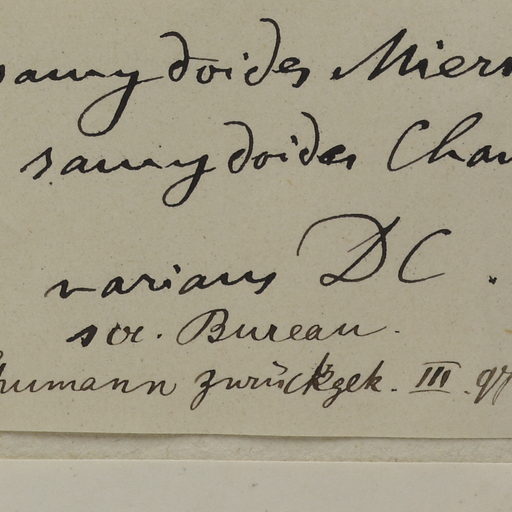 samydoides Miers
samydoides Cham
varians DC.
sec. Bureau.
humann zurückgek. III. 97